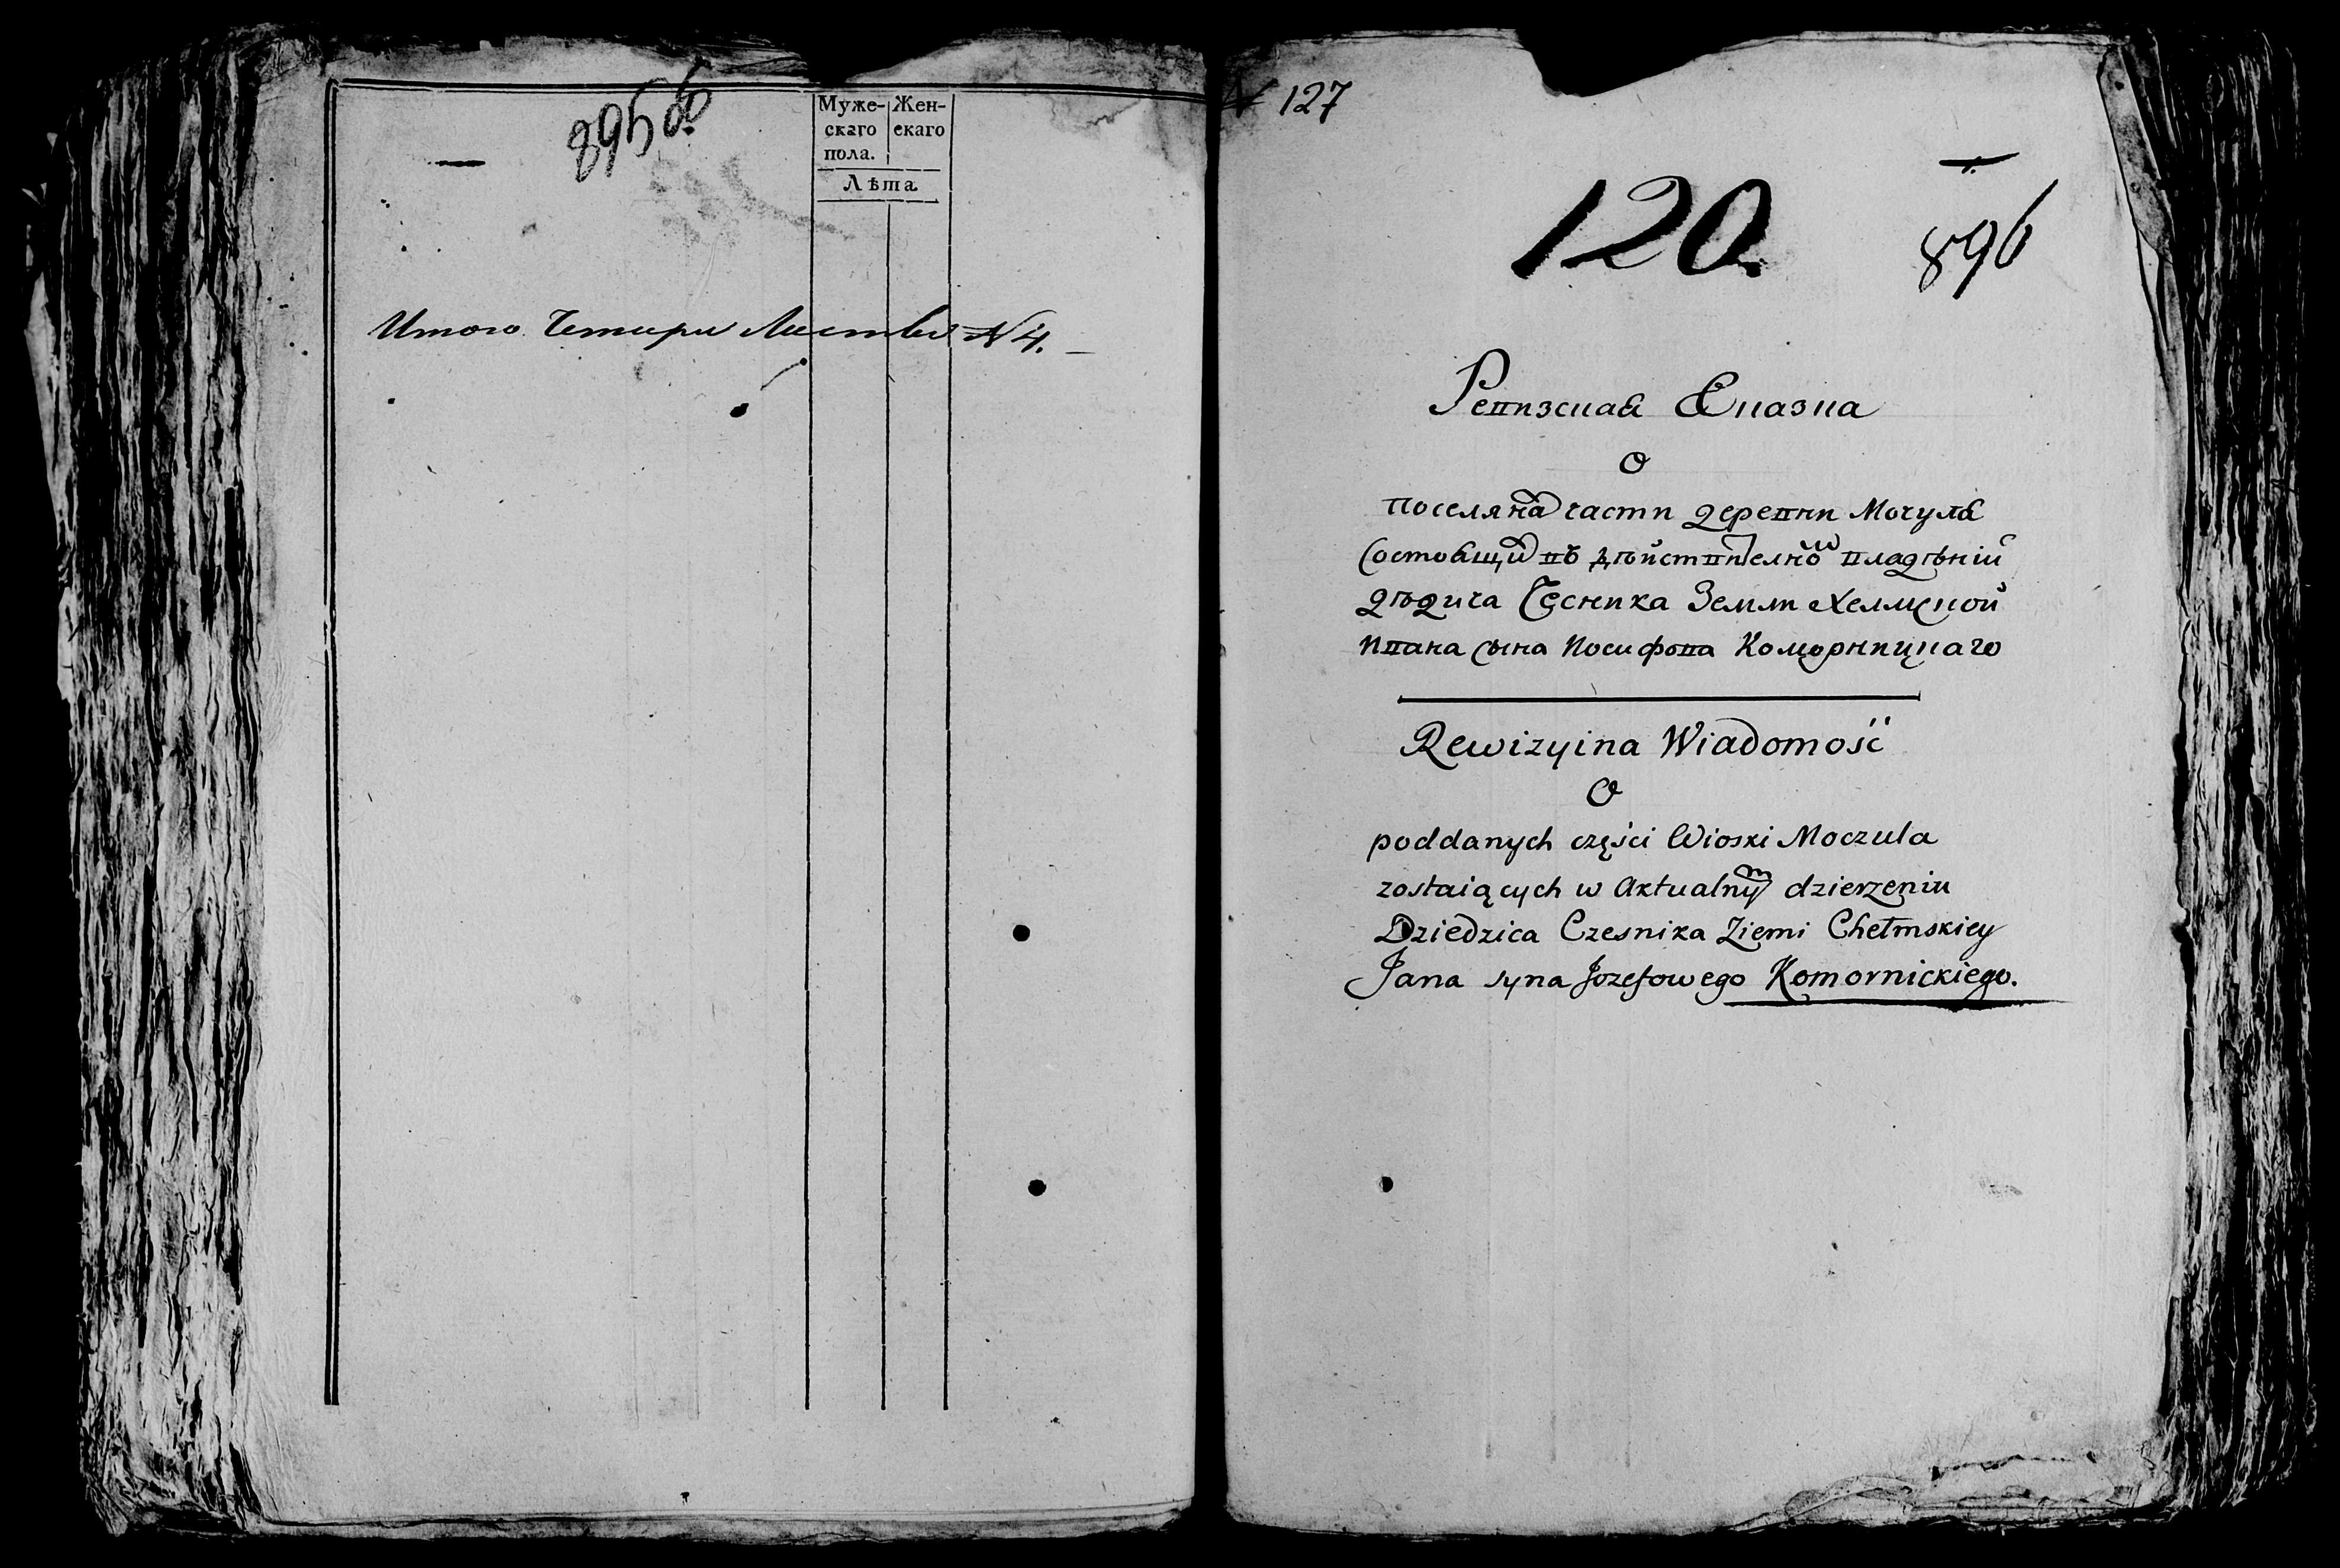 895 об
Муже-
скаго
пола.
Жен-
скаго
Лѣта
Итого Четири Листвы N 4.
N 127
120.
896
Ревизская Сказка
О
поселяна части деревни Мочуля
состоящи въ дѣйствителном владѣнiй
дѣдича Чесника Земли Хелмской
Ивана сына Иосифова Коморницкаго
Rewizyina Wiadomość
O
poddanych części Wioski Moczula
zostaiących w Aktualnym dzierzeniu
Dziedzica Czesnika Ziemi Chełmskiey
Jana syna Jozefowego Komornickiego.